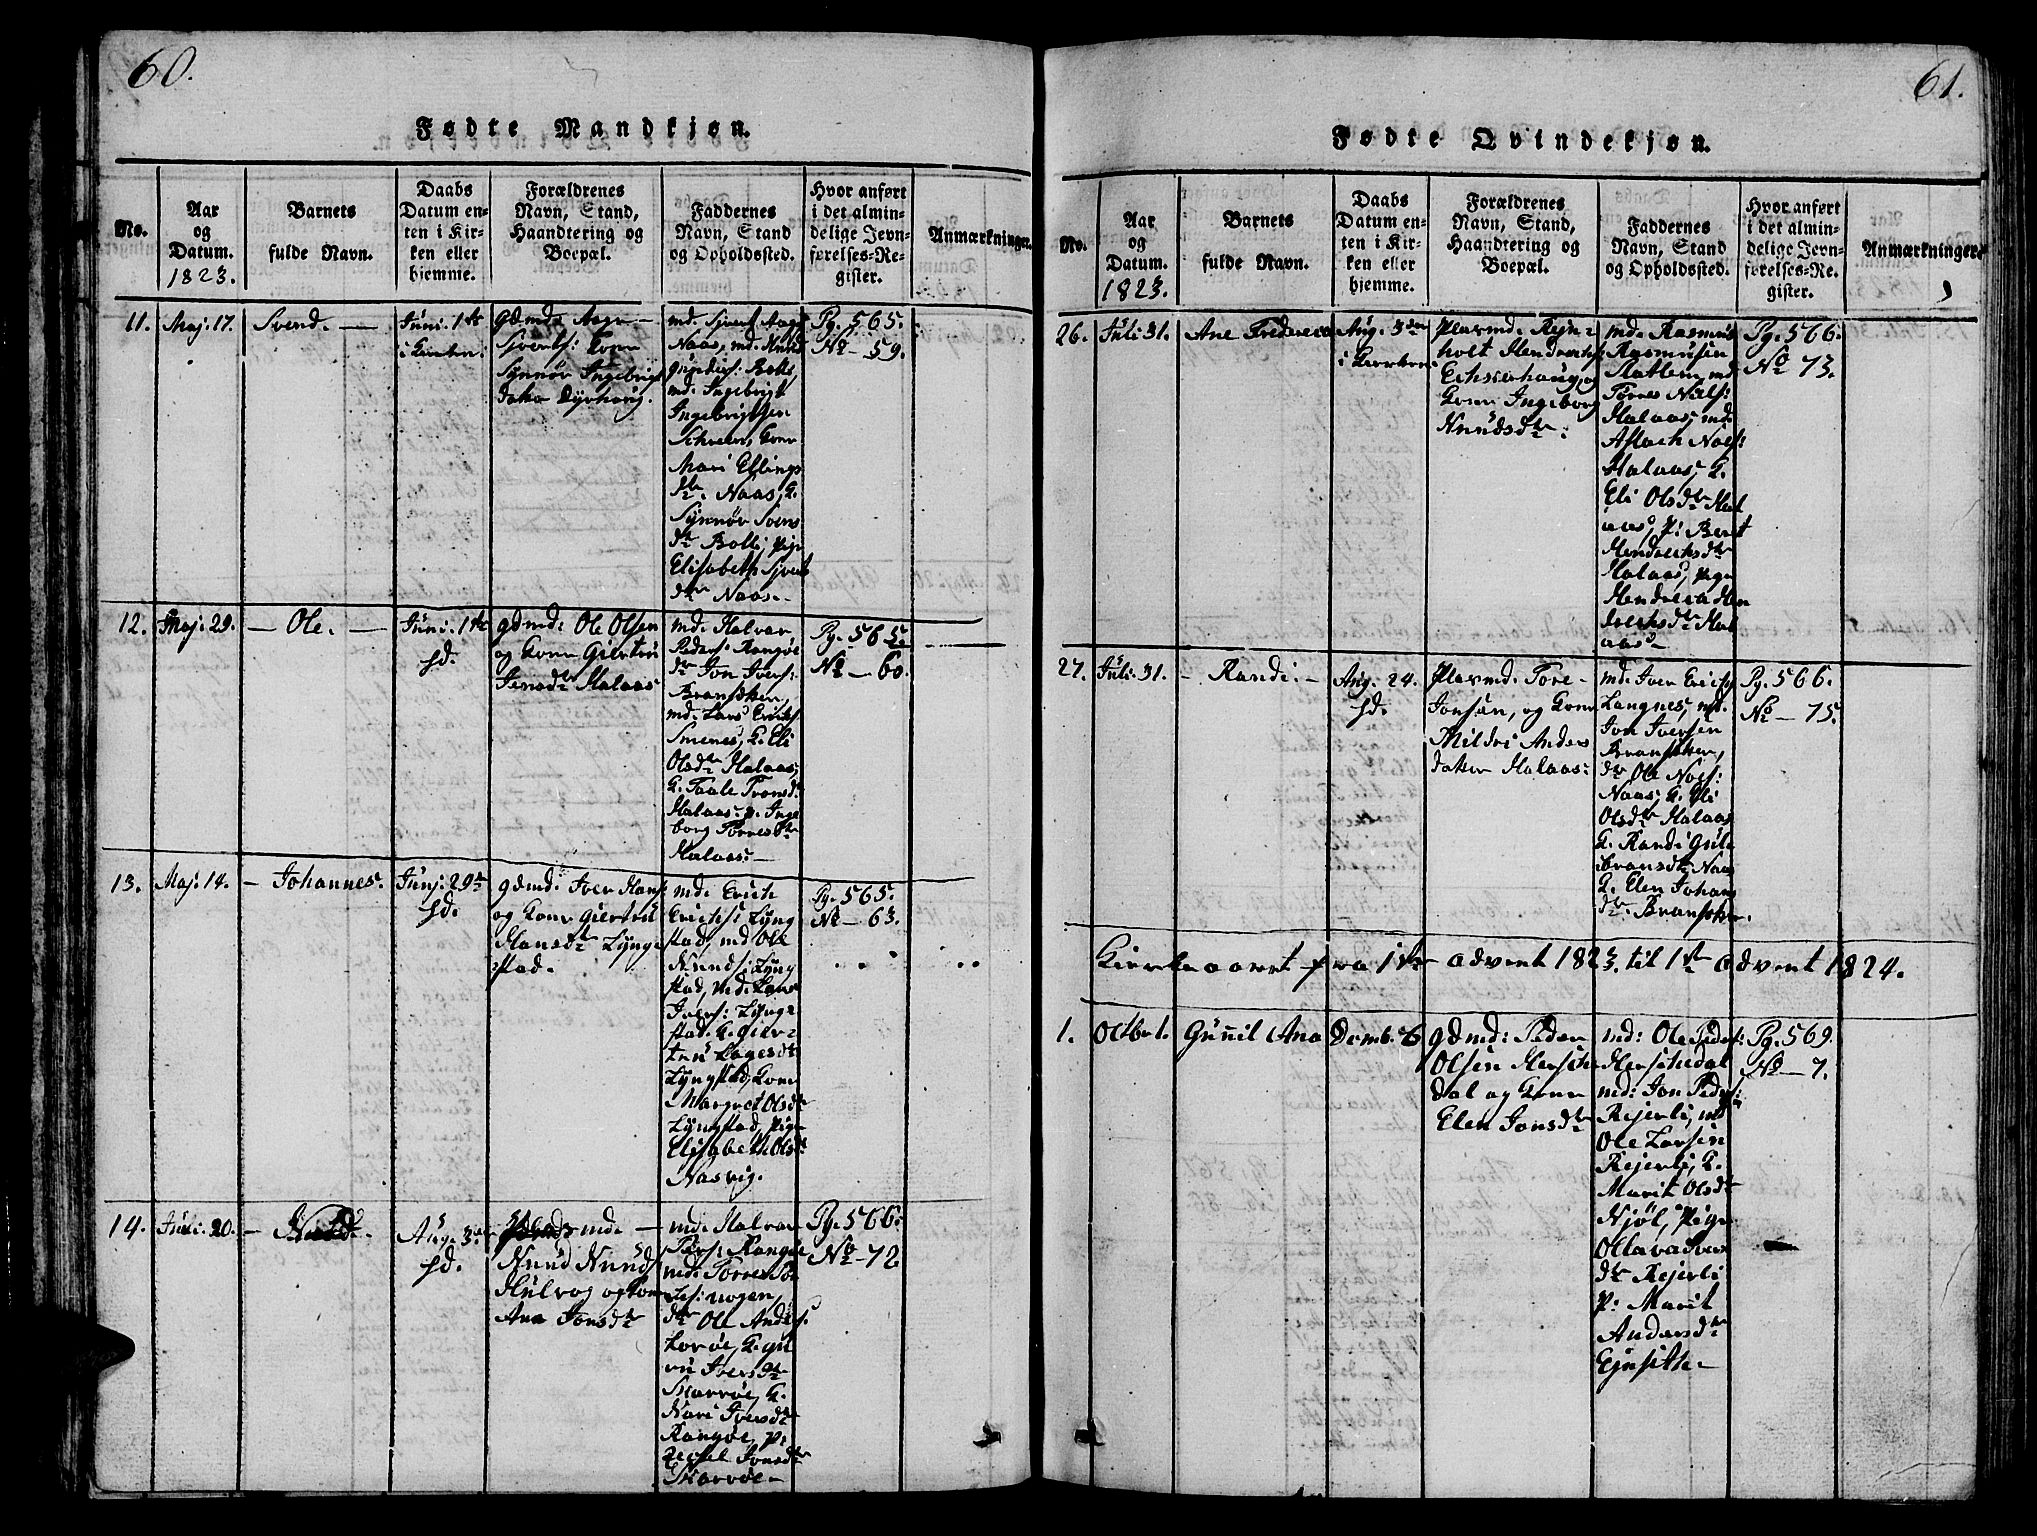 60.
Fødte Mandkjøn.
No.
Aar
og
Datum.
1823.
Barnets
fulde Navn.
Daabs
Datum en-
ten i Kir-
ken eller
hjemme.
Forældrenes
Navn, Stand,
Haandtering og
Boepæl.
Faddernes
Navn, Stand
og Opholdssted.
Hvor anført
i det almin-
delige Jevn-
førelses-Re-
gister.
Anmærkninger.
11.
Maj: 17.
Svend. —
Juni. 1ste
i Kirken:
Gdmd: Aage
Sjverts: Kone
Synnør Ingebrigt
Dater Dyrhaug.
md. Sjvert Aages
Naas, md. Knud
Gunders: Bolli,
md. Ingebrigt
Ingebrigtsen
Kone
Mari Ellings
dtr. Naas, K.
Synnør Svens
dtr Bolli, pige
Elisabeth Sjverts
dtr Naas.—
Pg. 565.
No — 59.
12.
Maj: 29.
— Ole. —
Juni. 1ste
hd.
gdmd: Ole Olsen
og Kone Giertru
Jensdtr Halaas
md. Halvar
Peders: Rangøe
dr Jon Ivers:
Bransken,
md. Lars Erichs:
Smenes, K. Eli
Olsdtr Halaas,
K. Taale Tronsd.
Halaas. p. Inge
borg Torresdtr
Halaas.—
Pg. 565.
No — 60.
13.
Maj: 14.
— Johannes.
Junj: 29de
hd.
gdmd: Iver Hans:
og Kone giertru
Hansdtr Lynge
stad.
md. Erich
Erichs: Lyng
stad, md Ole
Knuds: Lyng
stad, md. Hans
Ivers: Lynge
stad. K. gier-
tru Aagesdtr
Lyngstad, Kone
Margret Olsdtr
Lyngstad, Pige
Elisabeth Olsdtr
Nasvig.
Pg. 565.
No — 63.
14.
Juli: 20.
— Knud.
Aug. 3de
hd.
md. —
Knud Knuds:
Hulvog og Kone
Ane Jonsdtr
md. Halvar
Peders: Rangøe
md. Torres
dr Ole Anders.
Korøe, K. gu
ru Iversdtr
Skarvøe, K.
Kari Iversdtr
Rangøe, P:
Zecsel Jonsdtr
Skarvøe —
Pg. 566.
No — 72
61.
Fødte Qvindekjøn.
No.
Aar
og
Datum.
1823.
Barnets
fulde Navn.
Daabs
Datum en-
ten i Kir-
ken eller
hjemme.
Forældrenes
Navn, Stand,
Haandtering og
Boepæl.
Faddernes
Navn, Stand
og Opholdssted.
Hvor anført
i det almin-
delige Jevn-
førelses-Re-
gister.
Anmærkninger
26.
Juli 31.
Ane Frederica
Aug. 3de
i Kirken
Plasmd. Rejn-
holt Hendrichs:
Echserhaug, og
Kone Ingeborg
Knudsdtr:
md. Rasmus
Rasmusen
Flatlem, md
Torres Niels:
Halaas, md.
Aslach Noes:
Halaas, K.
Eli Olsdtr Hal
aas, p: Beret
Hendrichsdtr
Halaas, pige
Hendrica Hen
drichsdtr Hal
aas —
Pg. 566.
No 73.
27.
Juli. 31.
— Randi. —
Aug. 24.
hd.
Plasmd. Tore
Jonsøn, og Kone
Mildri Anders
dater Halaas:
md. Iver Erichs
Langnes, md.
Jon Iversen
Bransken,
dr Ole Noes:
Naas. K. Eli
Olsdtr Halaas
K. Randi Gul
bransdtr Naas
K. Elen Johans
dtr. Bransken.
Pg. 566.
No — 75.
Kirkeaaret fra 1ste advent 1823. til 1ste advent 1824.
1.
Octbr 1.
Gunnil Ana
Decemb. 6
gdmd: Peder
Olsen Hensche
dal og Kone
Elen Jonsdtr
md: Ole Peders:
Henschedal
md: Jon Peders:
Rejerli, md
Ole Larsen
Rejerli, K.
Marit Olsdtr
Njøl, Pige
Ollava Ivers
dtr Rejerli
P: Marit
Andersdtr
Ejnsitli —
Pg. 569.
No — 7.